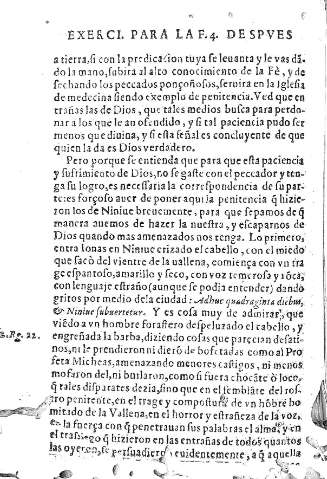 EXERCI. PARA LA F. 4. DESPVES
a tierra, si con la predicacion tuya se leuanta y le vas dã-
do la mano, subira al alto conocimiento de la Fè, y de
sechando los peccados ponçoñosos, seruira en la Iglesia
de medecina siendo exemplo de penitencia. Ved que en
trañas las de Dios, que tales medios busca para perdo-
nar a los que le an ofendido, y si tal paciencia pudo ser
menos que diuina, y si esta señal es concluyente de que
quien la da es Dios verdadero.
Pero porque se entienda que para que esta paciencia
y sufrimiento de Dios, no se gaste con el peccador y ten-
ga su logro, es necessaria la correspondencia de su par-
te: es forçoso auer de poner aqui la penitencia q̃ hizie-
zon los de Niniue breuemente, para que sepamos de q̃
manera auemos de hazer la nuestra, y escaparnos de
Dios quando mas amenazados nos tenga. Lo primero,
entra Ionas en Niniue erizado el cabello, con el miedo
que sacò del vientre de la vallena, comiença con vn tra
ge espantoso, amarillo y seco, con voz temerosa y rôca,
con lenguaje estraño (aunque se podia entender) dando
gritos por medio de la ciudad: Adhuc quadraginta diebus,
& Niniue subuertetur. Y es cosa muy de admirar, que
viẽdo a vn hombre forastero despeluzado el cabello, y
3. Re. 22. engreñada la barba, diziendo cosas que parecian desati-
nos, ni le prendieron ni dierõ de bofetadas como al Pro
feta Micheas, amenazando menores castigos, ni menos
mofaron del, ni burlaron, como si fuera chocãte ò loco,
q̃ tales disparates dezia, sino que en el semblãte del ros-
tro penitente, en el trage y compostura de vn hõbre bo
mitado de la Vallena, en el horror y estrañeza de la voz,
en la fuerça con q̃ penetrauan sus palabras el alma, y en
el trasiego q̃ hizieron en las entrañas de todos quantos
las oyeron, se persuadierõ euidentemente, a q̃ aquella